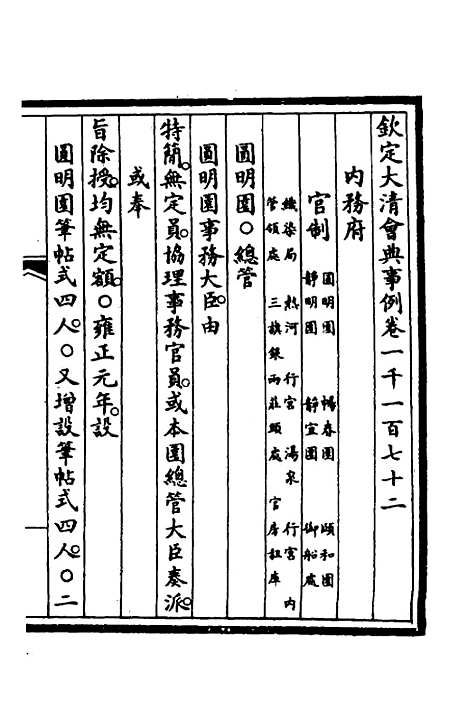 欽定大清會典事例卷一千一百七十二
內務府
官制 圓明園 暢春園 頤和園
靜明園 靜宜園 御船處
織染局 熱河 行宮 湯泉 行宮 內
管領處 三旗銀兩莊頭處 官房租庫
圓明園○總管
圓明園事務大臣由
特簡無定員協理事務官員或本園總管大臣奏派
或奉
旨除授均無定額○雍正元年設
圓明園筆帖式四人○又增設筆帖式四人○二